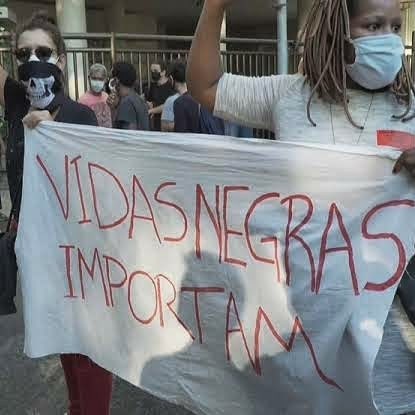 VIDAS NEGRAS
IMPORTAM